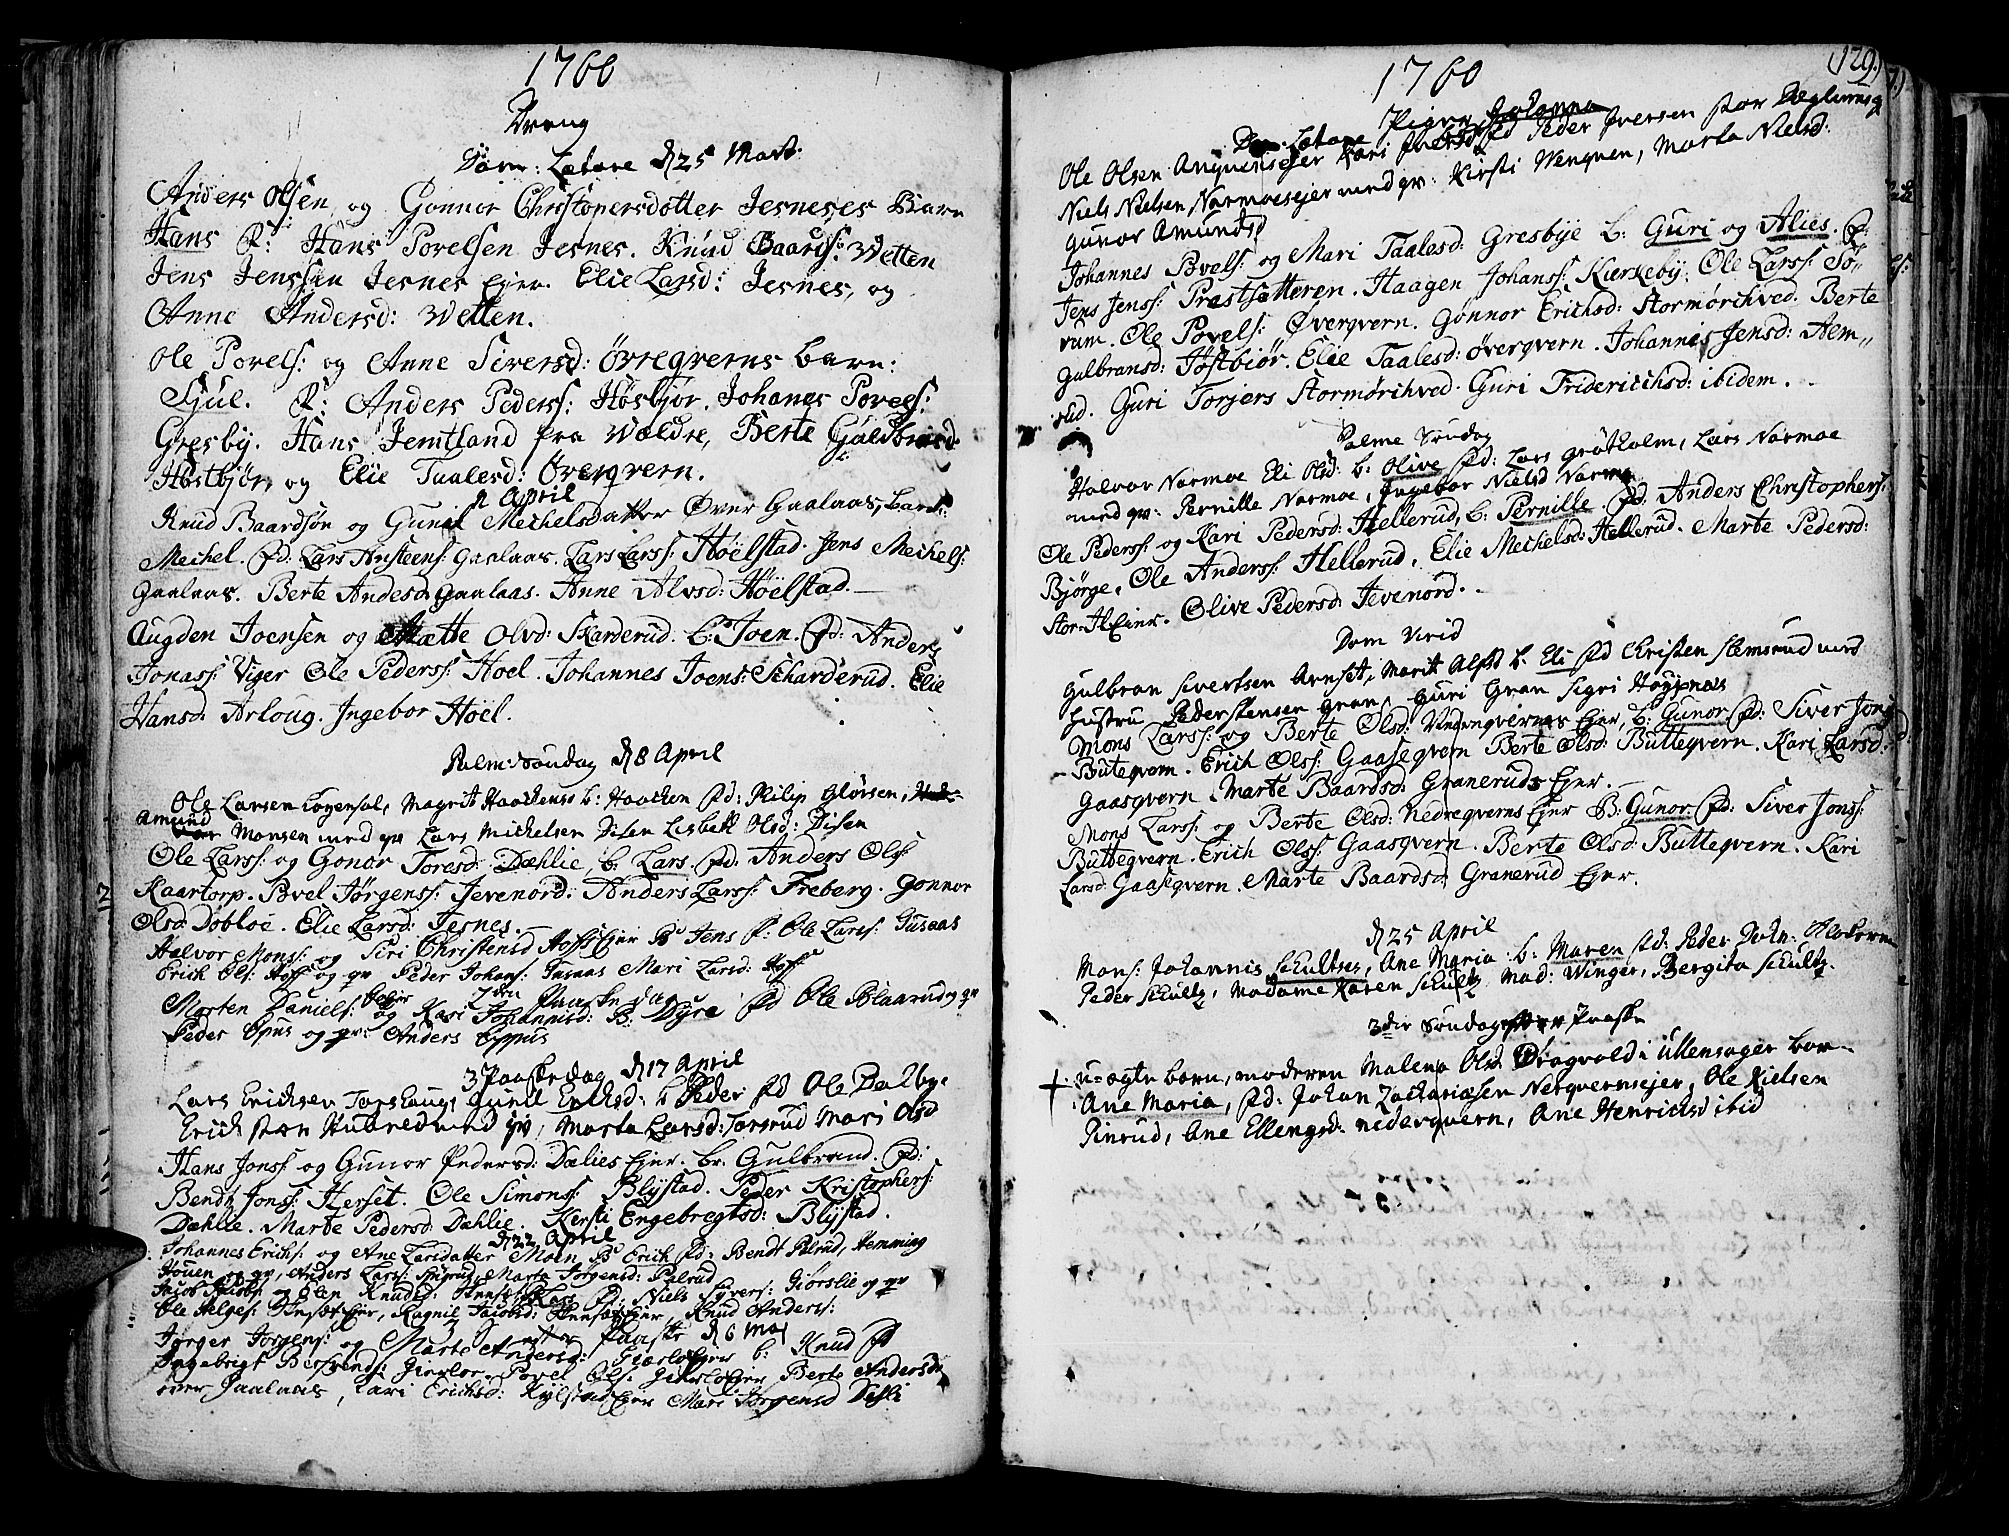 1760
Dreng
Dom: Lætare d 25 Mart:
Anders Olsen og Gonnor Christopersdotter Jesneses Barn
Hans F: Hans Povelsen Jesnes. Knud Baards: Wetten
Jens Jenssen Jesnes Ejer. Elie Larsd: Jesnes, og
Anne Andersd: Wetten.
Ole Povels: og Anne Siversd: Övreqverns barn:
Sjul. F: Anders Peders: Høsbjør. Johanes Povels:
Gresby. Hans Jemtland fra Waldre, Berte Guldbrsd:
Høstbjør, og Elie Taalesd: Øvergvern.
d April
Knud Baardsøn og Gunil Mechelsdatter Øver Gaalaas, barn:
Mechel. Fd: Lars Ansteens: Gaalaas. Lars Larss: Höelstad. Jens Mechels:
Gaalaas. Berte Andesd: Gaalaas. Anne Alvsd: Höelstad.
Augden Joensen og Mætte Olvd: Skarderud. b: Joen. Fd: Anders
Jonass: Viger Ole Peders: Hoel. Johannes Joens: Scharderud. Elie
Hansd: Arloug. Ingebor Hoel.
Palm: Søndag d 8 April
Ole Larsen Løgensol, Magrit Haachens b: Haachen Fd: Philip Gløvsen,
Amund Monsen med qv Lars Michelsen Disen Lisbeth Olsd: Disen
Ole Larss: og Gonor Toresd: Dæhlie, b: Lars. Fd: Anders Ols:
Kaartorp. Povel Jørgens: Jevenord: Anders Larss: Freberg. Gonnor
Olsd: Dobloe. Elie Larsd: Jesnes.
Halvor Mons: og Siri Christensd Hoffs Ejer B: Jens F: Ole Lars: Tusaas
Erich Ols: Hoff og qv Peder Johans: Tusaas Mari Larsd: Hoff
2den Paaskedag
Morten Daniels: og Kari Johannisd: B: Dyre Fd Ole Blaarud og qv
Peder Opus og qv: Anders Oppus
3 Paaskedag d 17 April
Lars Erichsen Torshaug, Gunil Erichsd: b Peder Fd Ole Dalbye
Erich med qv, Marta Larsd: Torsrud Mari Olsd
Hans Jonss: og Gunor Pedersd: Dælies Ejer. br: Gulbrand. Fd:
Bendt Jonss: Herset. Ole Simons: Blystad. Peder Kristophers:
Dæhlie. Marte Pedersd: Dæhlie. Kersti Engebregtsd: Blystad.
d 22 April
Johannes Erichs: og Ane Larsdatter Moen B: Erich Fd: Bendt Palrud, Hemming
Houen og qv, Anders Larss: Marta Jørgensd: Palrud
Jacob Jacobs: og Elen Knudsd: Lars Fd: Niels Syvers: Giørslie og qv
Ole Helges: Ejer, Ragnil Jacobsd: Ejer, Knud Anders:
3 S efter Paaske d 6 Maj
Jørger Jørgens: og Marte Andersd: b: Knud Fd
Ingebrigt Povel Ols: Berte Andersd:
over Gaalaas, Kari Erichsd: Kylstad Ejer Mari Jørgensd Dehli
1760
129.
Piger
Dom: Lætare
Ole Olsen Kari Peder Iversen
Niels Nielsen Narmoesejer med qv: Kirsti Wenqven, Marta Nielsd:
Gunor Amundsd
Johannes Povels: og Mari Taalesd: Gresbye b: Guri og Alies. F:
Jens Jens: Prestsætteren. Haagen Johans: Kirkeby. Ole Larss: Sø-
rum. Ole Povels: Øverqvern. Gonnor Erichsd: Stormörchved. Berte
Gulbransd: Høstbiør. Elie Taalesd: øverqvern. Johannis Jensd: Aem-
rud. Guri Torjers Stormörchved. Guri Friderichsd: ibidem.
Palme Søndag
Halvor Narmoe Eli Olsd: b: Olive Fd: Lars Grøtholm, Lars Narmoe
med qv: Pernille Narmoe, Ingebor Nielsd Narmoe
Ole Peders: og Kari Pedersd: Hellerud, b: Pernille Fd: Anders Christophers:
Bjørge, Ole Anders: Hellerud, Elie Mechelsd: Hellerud. Marte Pedersd:
Stor-Hsejer. Olive Pedersd: Jevenord.
Dom Virid
Gulbran Sivertsen Arnset, Marit Alfsd b: Eli Fd Christen Stemsrud med
hustru Peder Gran, Guri Gran Sigri
Mons Larss: og Berte Olsd: Nedreqvernes Ejer, b: Gunor Fd: Siver Jons:
Butteqvern. Erich Olss: Gaaseqvern Berte Olsd: Butteqvern. Kari Larsd:
Gaasqvern. Marte Baardsd: Graneruds Ejer.
Mons Larss: og Berte Olsd: Nedreqverns Ejer B: Gunor Fd: Siver Jonss:
Butteqvern. Erich Olss: Gaasqvern. Berte Olsd: Butteqvern. Kari
Larsd: Gaaseqvern. Marte Baardsd: Granerud Ejer.
d 25 April
Mons: Johannis Schultses, Ane Maria b: Maren Fd: Peder
Peder Schultz, Madame Karen Schultz, Mad: Winger, Bergita Schultz.
3die Søndag efter Paaske
u-ægte barn, moderen Malena Olsd Dragvold i Ullensager barn
Ane Maria, Fd: Johan Zachariasen Nerqvernsejer, Ole Nielsen
Pinrud, Ane Ellengsd: nederqvern, Ane Henrichsd ibid